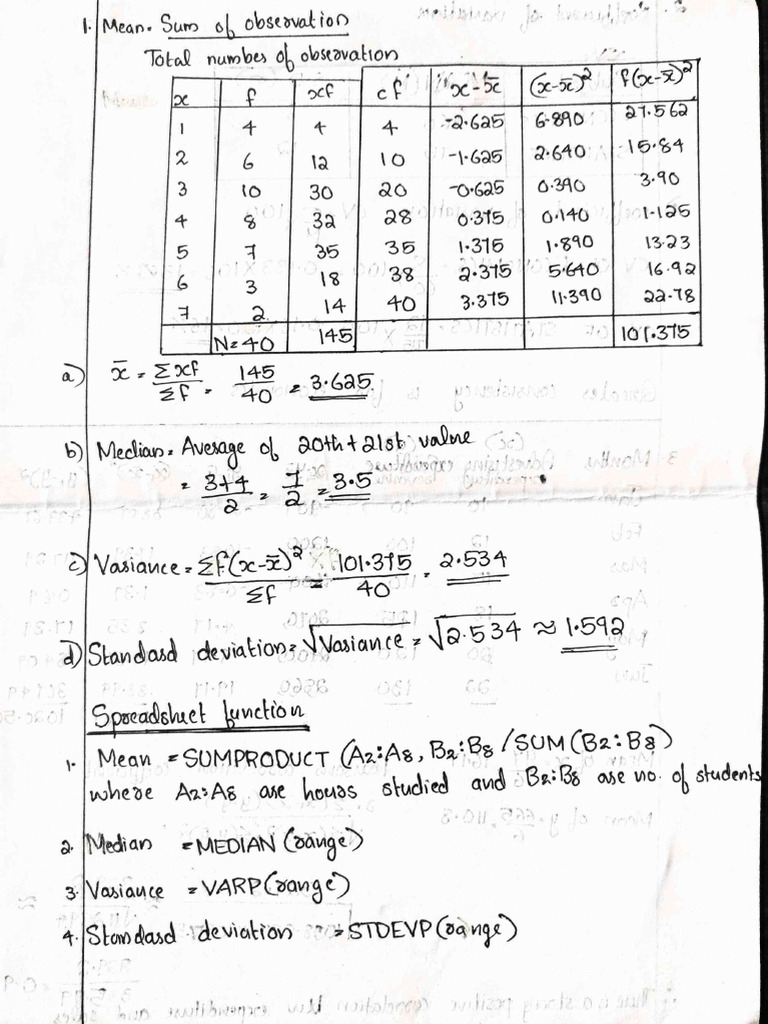 1. Mean = Sum of observation
Total number of observation
x f xf cf x-x̄ (x-x̄)² f(x-x̄)²
1 4 4 4 -2.625 6.890 27.562
2 6 12 10 -1.625 2.640 15.84
3 10 30 20 -0.625 0.390 3.90
4 8 32 28 0.375 0.140 1.125
5 7 35 35 1.375 1.890 13.23
6 3 18 38 2.375 5.640 16.92
7 2 14 40 3.375 11.390 22.78
N=40 145 101.375
a) x̄ = Σxf/Σf = 145/40 = 3.625
b) Median = Average of 20th + 21st value
= 3+4/2 = 7/2 = 3.5
c) Variance = Σf(x-x̄)²/Σf = 101.375/40 = 2.534
d) Standard deviation = √Variance = √2.534 ≈ 1.592
Spreadsheet function
1. Mean = SUMPRODUCT (A2:A8, B2:B8 / SUM (B2:B8)
where A2:A8 are hours studied and B2:B8 are no. of students
2. Median = MEDIAN (range)
3. Variance = VARP (range)
4. Standard deviation = STDEVP (range)